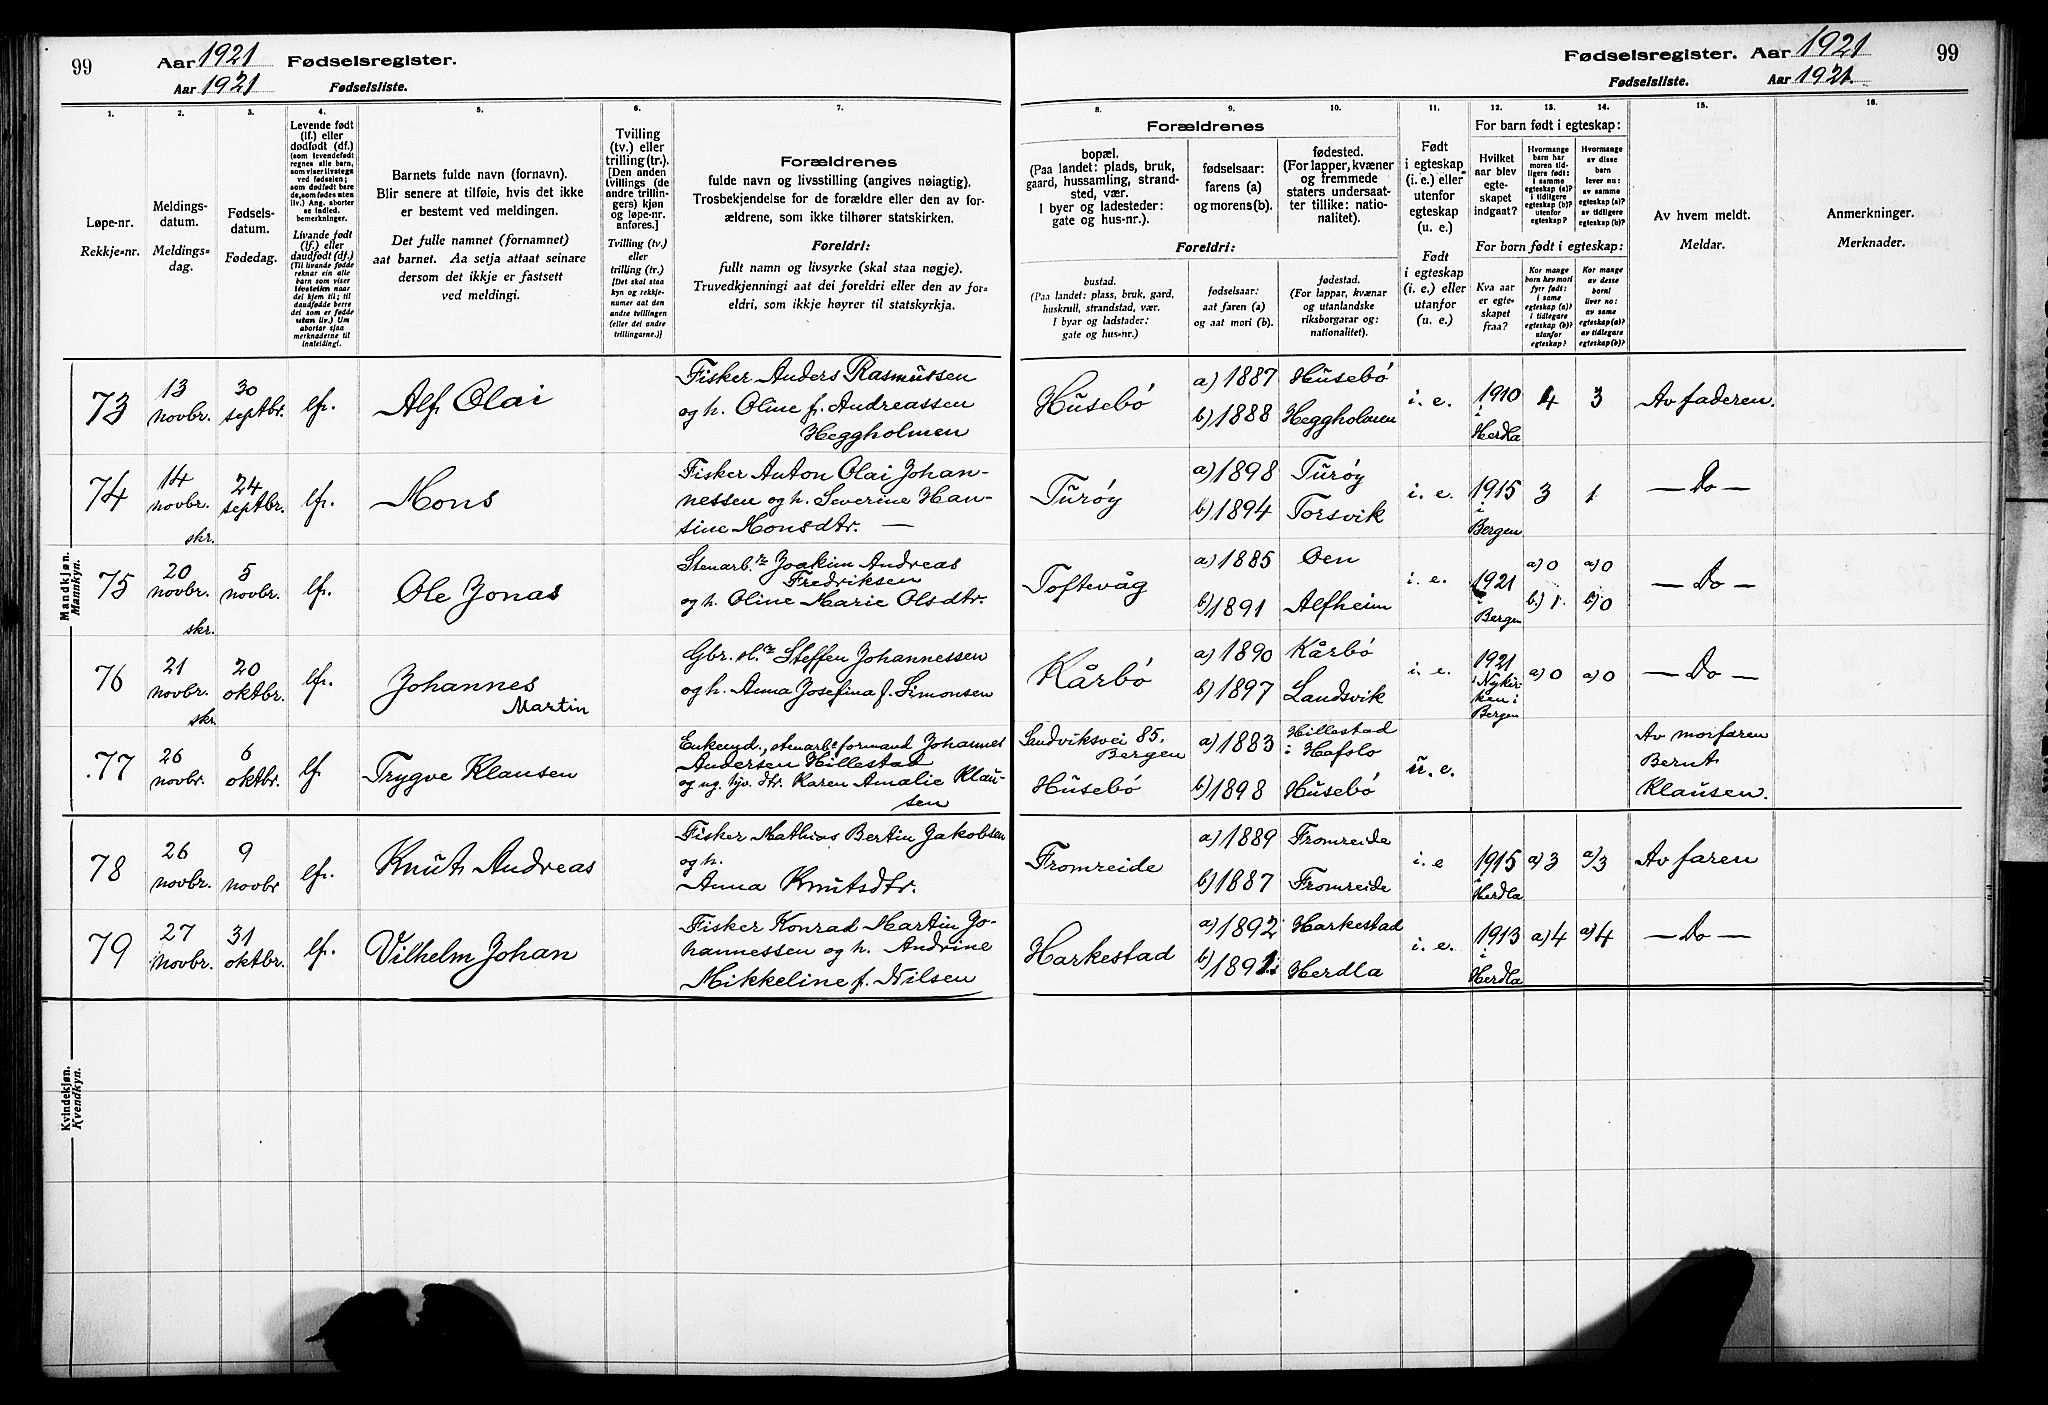 99
Aar 1921 Fødselsregister.
Aar 1921 Fødselsliste.
Fødselsregister. Aar 1921
99
Fødselsliste. Aar 1921.
1.
Løpe-nr.
Rekkje-nr.
2.
Meldings-
datum.
Meldings-
dag.
3.
Fødsels-
datum.
Fødedag.
4.
Levende født
(lf.) eller
dødfødt (df.)
(som levendefødt
regnes alle barn,
som viser livstegn
ved fødselen;
som dødfødt bare
de, som føltes uten
liv.) Ang. aborter
se indled.
bemerkninger.
Livande født
(lf.) eller
daudfødt (df.)
5.
Barnets fulde navn (fornavn).
Blir senere at tilføie, hvis det ikke
er bestemt ved meldingen.
Det fulle namnet (fornamnet)
aat barnet. Aa setja attaat seinare
dersom det ikkje er fastsett
ved meldingi.
6.
Tvilling
(tv.) eller
trilling (tr.).
[Den anden
tvillings (de
andre trillin-
gers) kjøn
og løpe-nr.
anføres.]
Tvilling (tv.)
eller
trilling (tr.)
[Det skal staa
kyn og rekkje-
numer aat den
andre tvillingen
(eller dei andre
trillingarne.)]
7.
Forældrenes
fulde navn og livsstilling (angives nøiagtig).
Trosbekjendelse for de forældre eller den av for-
ældrene, som ikke tilhører statskirken.
Foreldri:
fullt namn og livsyrke (skal staa nøgje).
Truvedkjenningi aat dei foreldri eller den av for-
eldri, som ikkje høyrer til statskyrkja.
8. 9. 10.
Forældrenes
bopæl.
(Paa landet: plads, bruk,
gaard, hussamling, strand-
sted, vær.
I byer og ladesteder:
gate og hus-nr.).
fødselsaar:
farens (a)
og morens (b).
fødested.
(For lapper, kvæner
og fremmede
staters undersaat-
ter tillike: natio-
nalitet).
Foreldri:
bustad.
(Paa landet: plass, bruk, gard,
huskrull, strandstad, vær.
I byar og ladstader:
gate og hus-nr.)
fødselsaar:
aat faren (a)
og aat mori (b).
fødestad.
(For lappar, kvænar
og utanlandske
riksborgarar og:
nationalitet).
11.
Født
i egteskap
(i. e.) eller
utenfor
egteskap
(u. e.)
Født
i egteskap
(i. e.) eller
utanfor
(u. e.).
12. 13. 14.
For barn født i egteskap:
Hvilket
aar blev
egte-
skapet
indgaat?
Hvormange
barn har
moren tid-
ligere født:
i samme
egteskap (a)?
i tidligere
egteskap (b)?
utenfor
egteskap?
Hvormange
av disse
barn
lever nu:
av samme
egteskap (a)?
av tidligere
egteskap (b)?
For born født i egteskap:
Kva aar
er egte-
skapet
fraa?
Kor mange
born hev mori
fyrr født:
i same
egteskap (a)?
i tidlegare
egteskap (b)?
utanfor
egteskap?
Kor mange
av desse
borni
liver no:
av same
egteskap (a)?
av tidlegare
egteskap (b)?
15.
Av hvem meldt.
Meldar.
16.
Anmerkninger.
Merknader.
Mandkjøn.
Mannkyn.
73
13
novbr.
30
septbr.
lfr.
Alf Olai
Fisker Anders Rasmussen
og h. Oline f. Andreassen
Heggholmen
Husebö
a) 1887
b) 1888
Husebö
Heggholmen
i. e.
1910
i
Herdla
4
3
Av faderen.
74
14
novbr.
skr.
24
septbr.
lfr.
Mons
Fisker Anton Olai Johan-
nessen og h. Severine Han-
sine Monsdtr. —
Turöy
a) 1898
b) 1894
Turöy
Torsvik
i. e.
1915
i
Bergen
3
1
— Do —
75
20
novbr.
skr.
5
novbr.
lfr.
Ole Jonas
Stenarb.r Joakim Andreas
Fredriksen
og h. Oline Marie Olsdtr.
Toftevåg
a) 1885
b) 1891
Oen
Alfheim
i. e.
1921
i
Bergen
a) 0
b) 1.
a) 0
b) 0
— Do —
76
21
novbr.
skr.
20
oktbr.
lfr.
Johannes
Martin
Gbr. sl.r Steffen Johannessen
og h. Anna Josefina f. Simonsen
Kårbö
a) 1890
b) 1897
Kårbö
Landsvik
i. e.
1921
i Nykir-
ken i
Bergen
a) 0
a) 0
— Do —
77
26
novbr.
6
oktbr.
lf.
Trygve Klausen
Enkemd., stenarb. formand Johannes
Andersen Hillestad
og ug. tjv. dtr. Karen Amalie Klau-
sen
Sandviksvei 85.
Bergen
Husebö
a) 1883
b) 1898
Hillestad
i Hafslo
Husebö
u. e.
Av morfaren
Bernt
Klausen.
78
26
novbr.
9
novbr
lfr.
Knut Andreas
Fisker Mathias Bertin Jakobsen
og h.
Anna Knutsdtr.
Fromreide
a) 1889
b) 1887
Fromreide
Fromreide
i. e
1915
i
Herdla
a) 3
a) 3
Av faren
79
27
Novbr.
31
oktbr.
lfr.
Vilhelm Johan
Fisker Konrad Martin Jo-
hannessen og h. Andrine
Mikkeline f. Nilsen
Harkestad
a) 1892
b) 1891
Harkestad
Herdla
i. e.
1913
i
Herdla
a) 4
a) 4
— Do —
Kvindekjøn.
Kvendkyn.